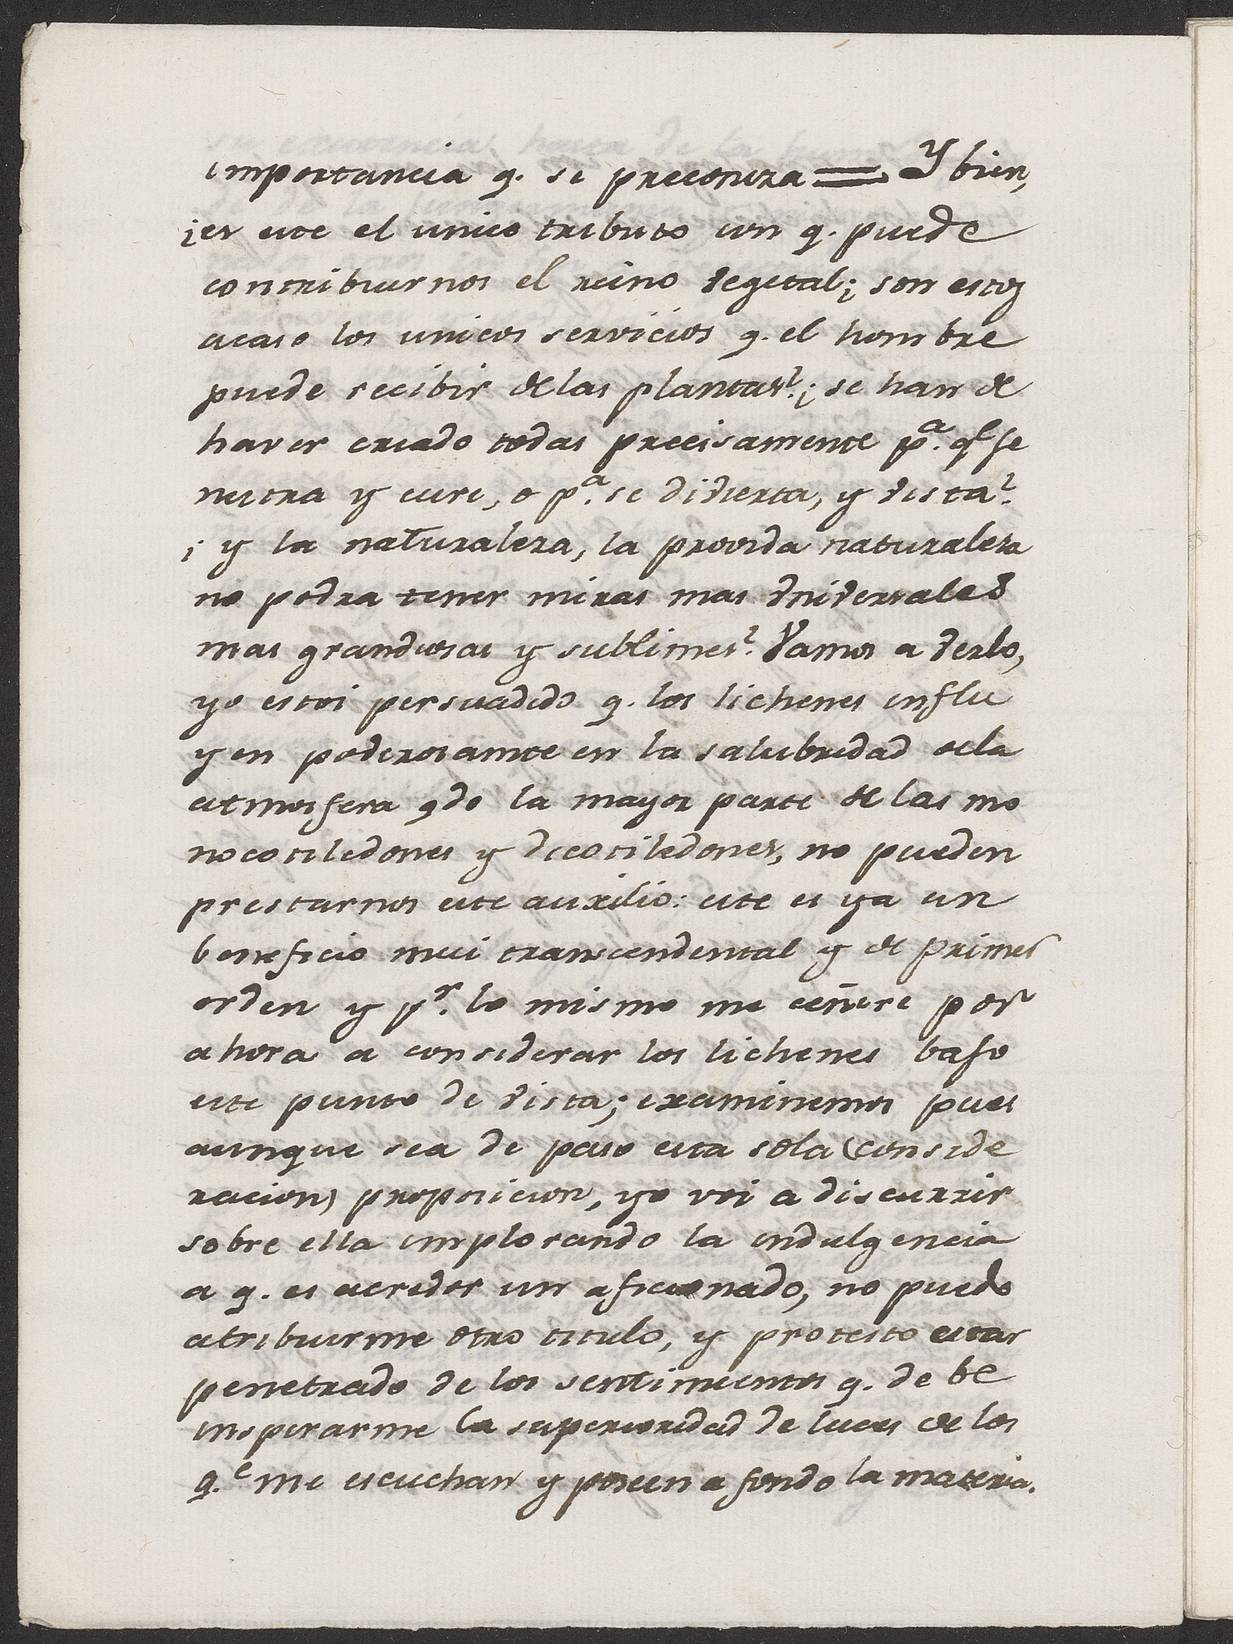 importancia q. se preconiza = Y bien,
¡es este el unico tributo con q. puede
contribuirnos el reino vegetal; ¡son estos
acaso los unicos servicios q. el hombre
puede recibir de las plantas?; ¡se han de
haver criado todas precisamente pa. qe se
nutra y cure, o pa. se divierta, y vista?
¡y la naturaleza, la provida naturaleza
no podra tener miras mas universales
mas grandiosas y sublimes? Vamos a verlo,
yo estoi persuadido q. los lichenes influ
yen poderosamte en la salubridad dela
atmosfera qdo la mayor parte de las mo
nocotiledones y dicotiledones, no pueden
prestarnos este auxilio: este es ya un
beneficio mui transcendental y de primer
orden y pr. lo mismo me ceñire por
ahora a considerar los lichenes bajo
este punto de vista; examinemos pues
aunque sea de paso esta sola (conside
racion) proposicion, yo voi a discurrir
sobre ella implorando la indulgencia
a q. es acredor un aficionado, no puedo
atribuirme otro titulo, y protesto estar
penetrado de los sentimientos q. debe
inspirarme la superioridad de luces de los
q.e me escuchan y poseen a fondo la materia.